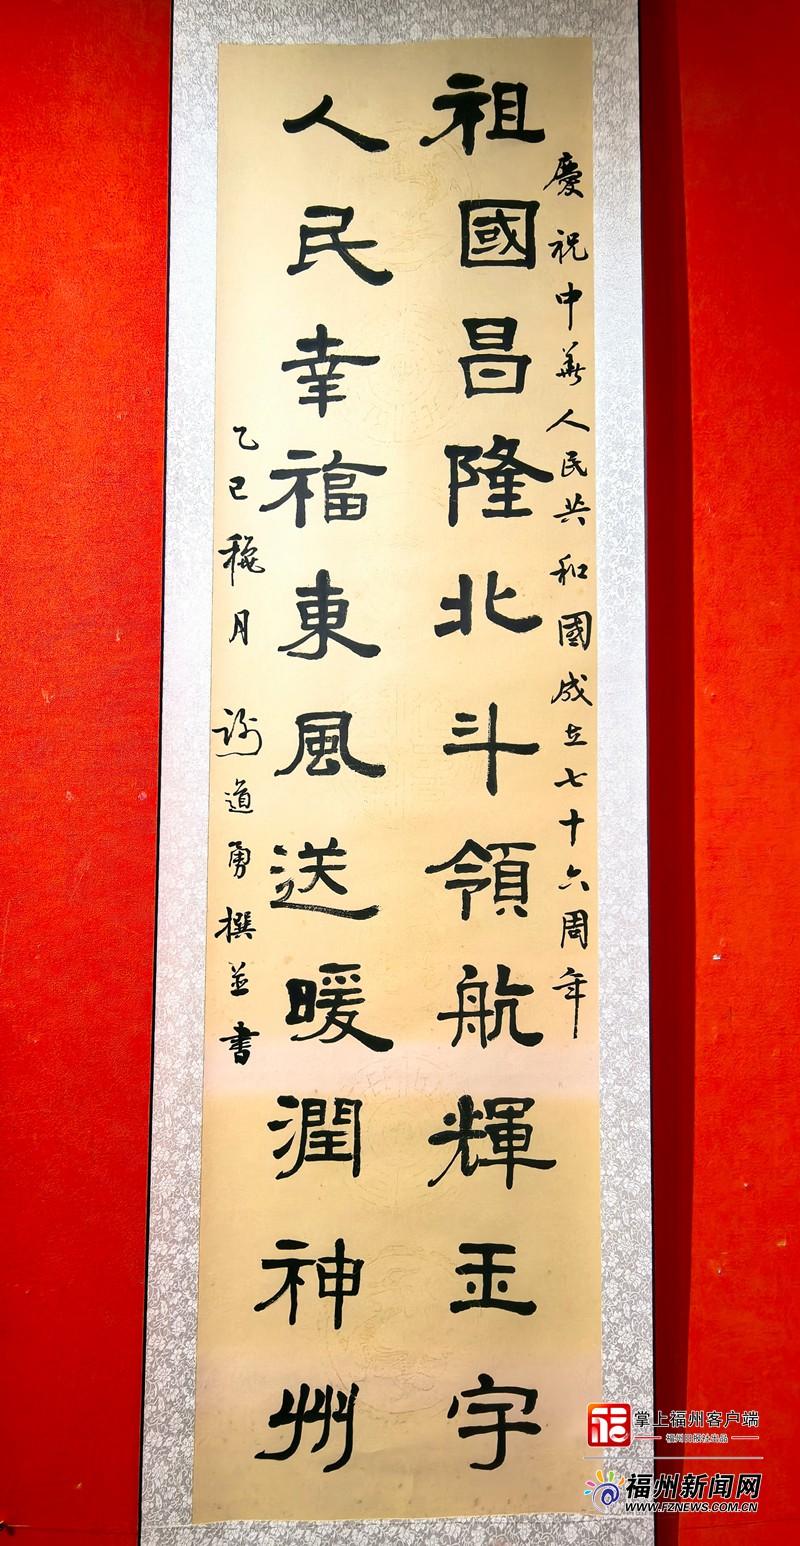 慶祝中華人民共和國成立七十六周年
祖國昌隆北斗領航輝玉宇
人民幸福東風送暖潤神州
乙巳穐月 謝道勇撰並書
掌上福州客户端
福州日报社出品
福州新闻网
WWW.FZNEWS.COM.CN